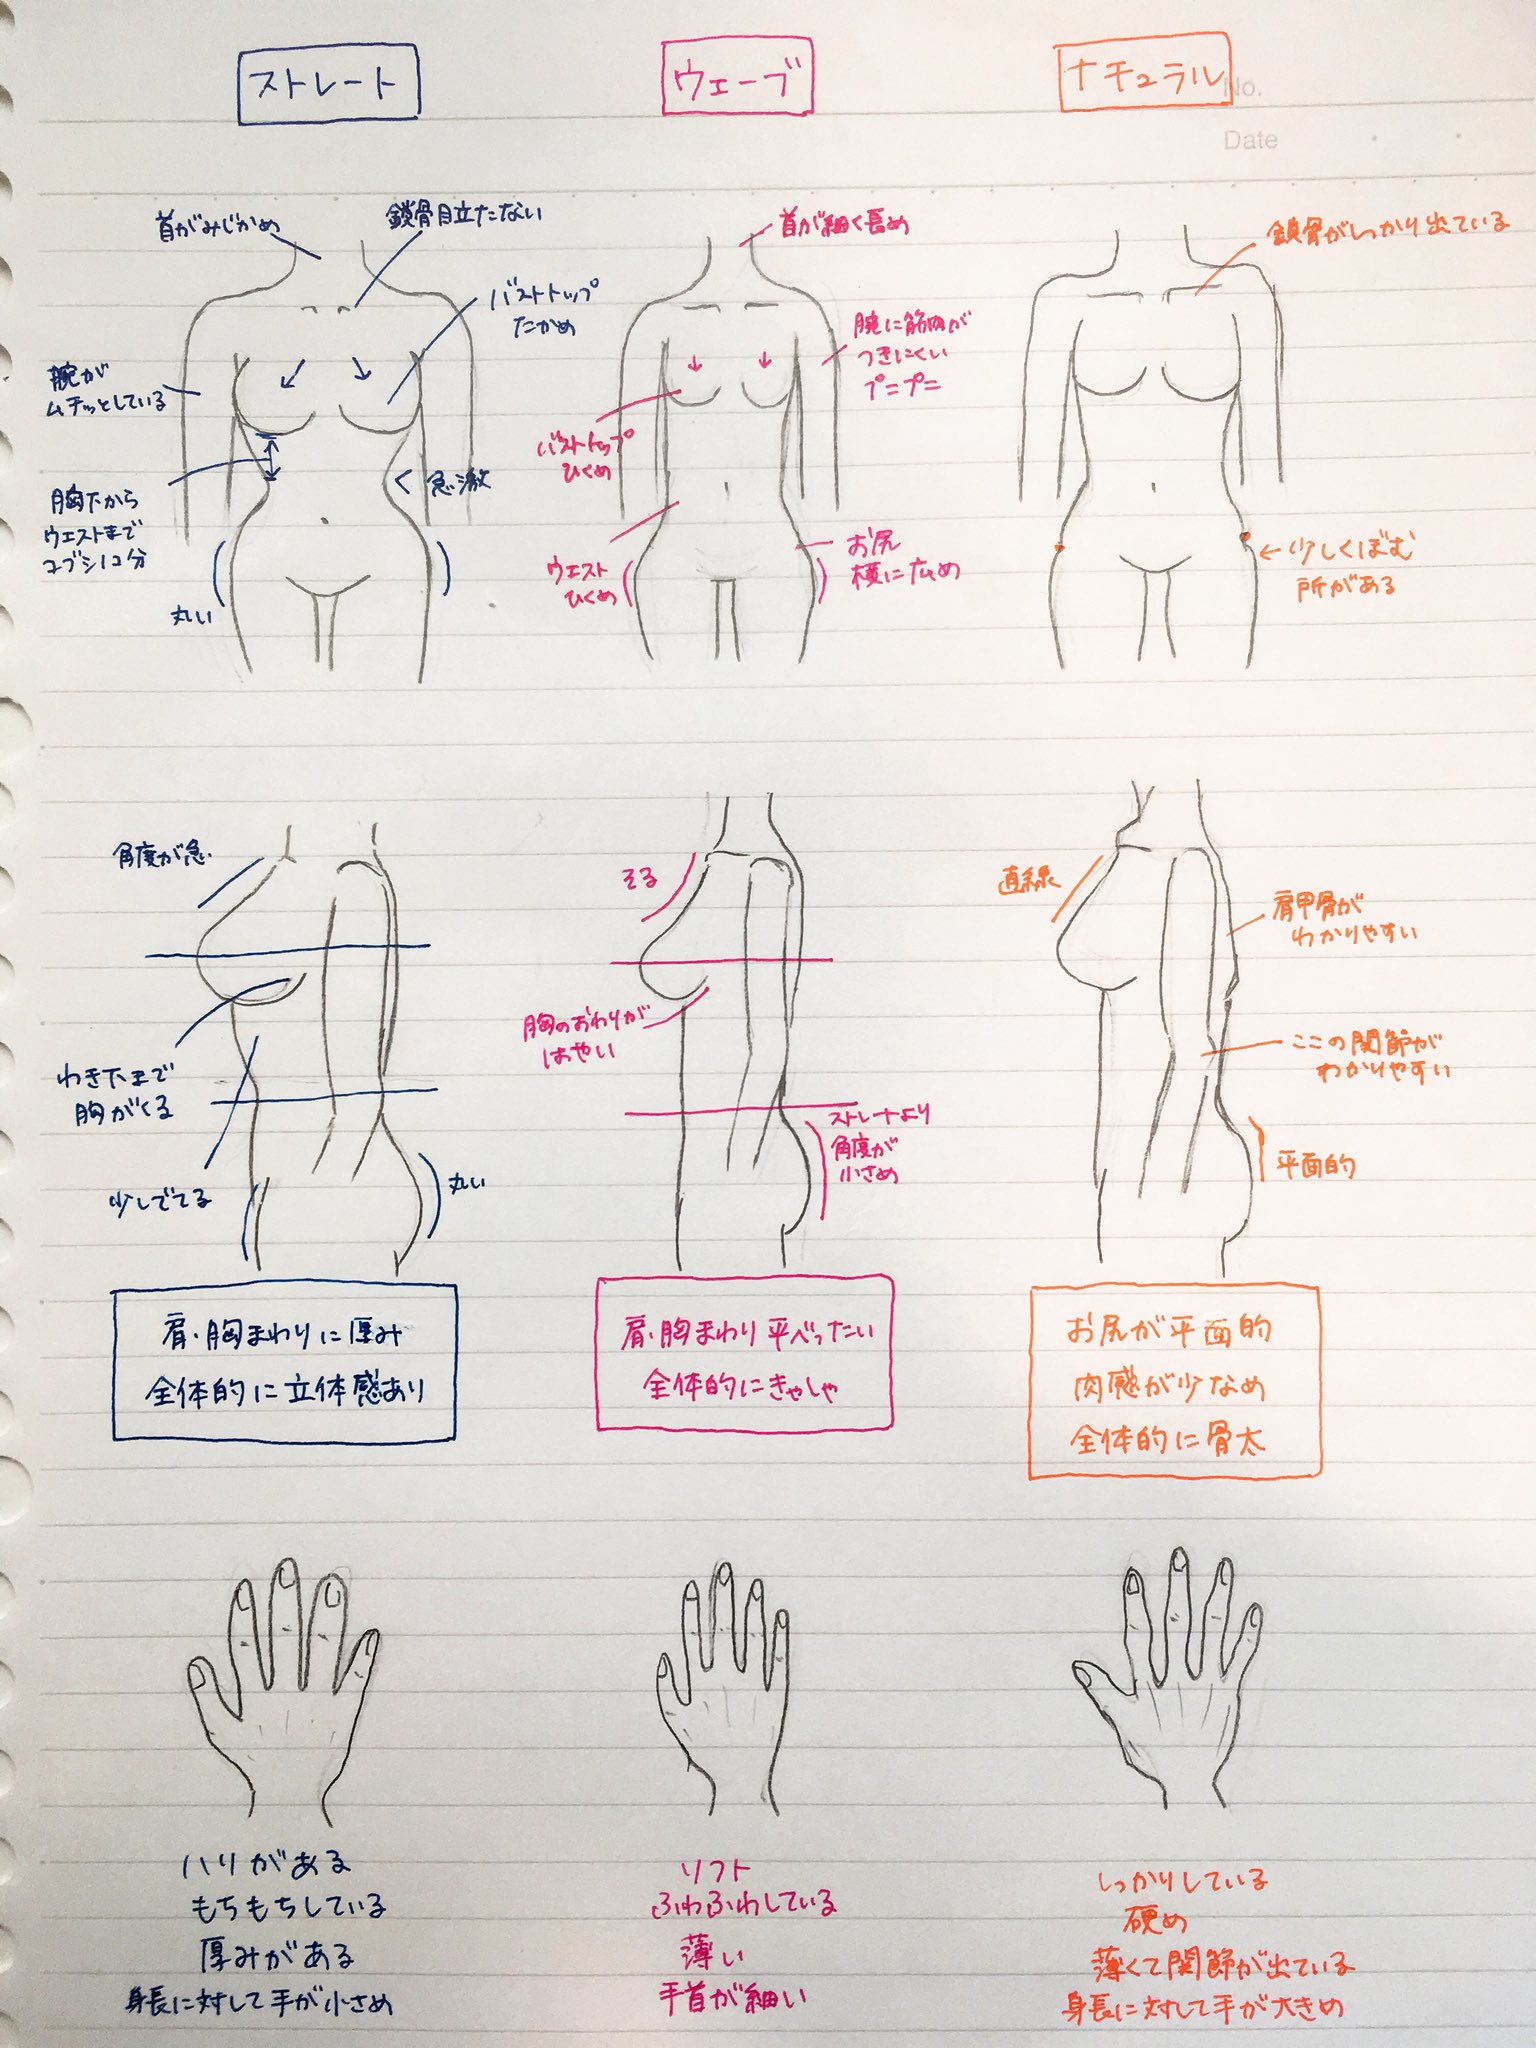 ストレート
ウェーブ
ナチュラル
No.
Date
首がみじかめ
鎖骨目立たない
バストトップ
たかめ
腕が
ムチッとしている
胸下から
ウエストまで
コブシ1コ分
急激
丸い
首が細く長め
腕に筋肉が
つきにくい
プニプニ
バストトップ
ひくめ
ウエスト
ひくめ
お尻
横に広め
鎖骨がしっかり出ている
少しくぼむ
所がある
角度が急
わき下まで
胸がくる
少しでてる
丸い
そる
胸のおわりが
はやい
ストレートより
角度が
小さめ
直線
肩甲骨が
わかりやすい
ここの関節が
わかりやすい
平面的
肩・胸まわりに厚み
全体的に立体感あり
肩・胸まわり平べったい
全体的にきゃしゃ
お尻が平面的
肉感が少なめ
全体的に骨太
ハリがある
もちもちしている
厚みがある
身長に対して手が小さめ
ソフト
ふわふわしている
薄い
手首が細い
しっかりしている
硬め
薄くて関節が出ている
身長に対して手が大きめ